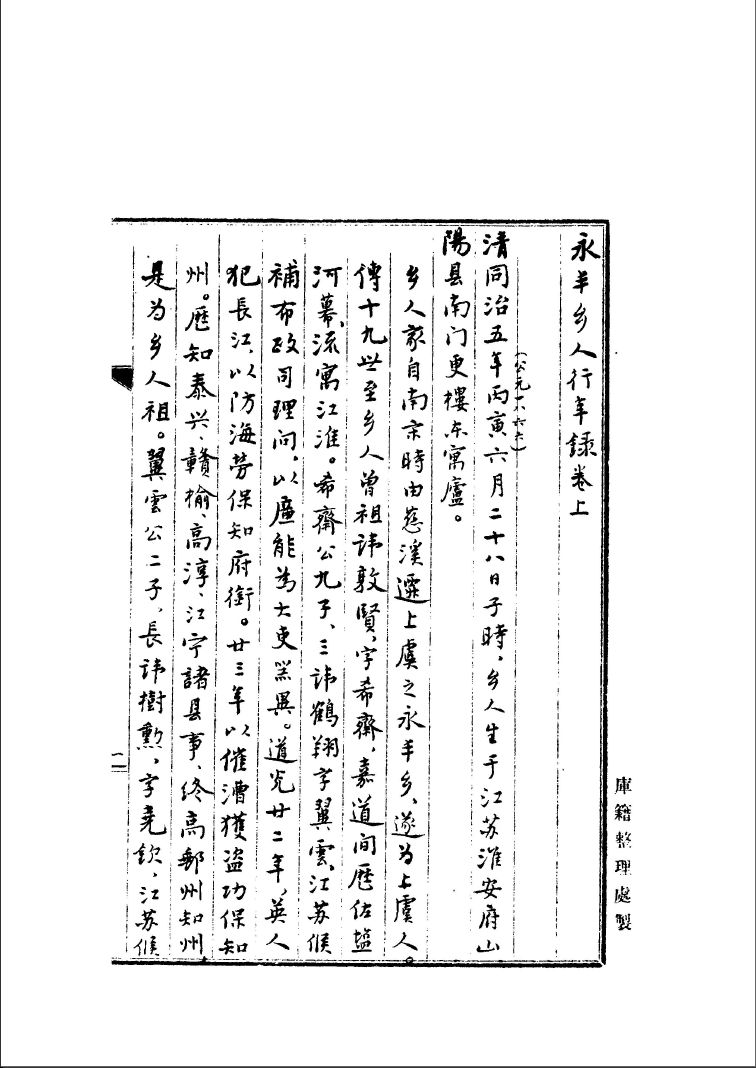 永丰乡人行年録卷上
清同治五年丙寅(公元一八六六)六月二十八日子時，乡人生于江苏淮安府山
陽县南门更樓东寓廬。
乡人家自南宋時由慈溪遷上虞之永丰乡，遂为上虞人。
傳十九世至乡人曾祖讳敦賢，字希齋，嘉道间歷佐盐
河幕，流寓江淮。希齋公九子、三讳鶴翔字翼雲，江苏候
補布政司理问。以廉能為大吏器異。道光廿二年，英人
犯長江，以防海劳保知府銜。廿三年以催漕獲盗功保知
州。歷知泰兴、贛榆、高淳、江宁諸县事，终高郵州知州，
是为乡人祖。翼雲公二子，長讳樹勳，字堯钦，江苏候
一
庫籍整理處製